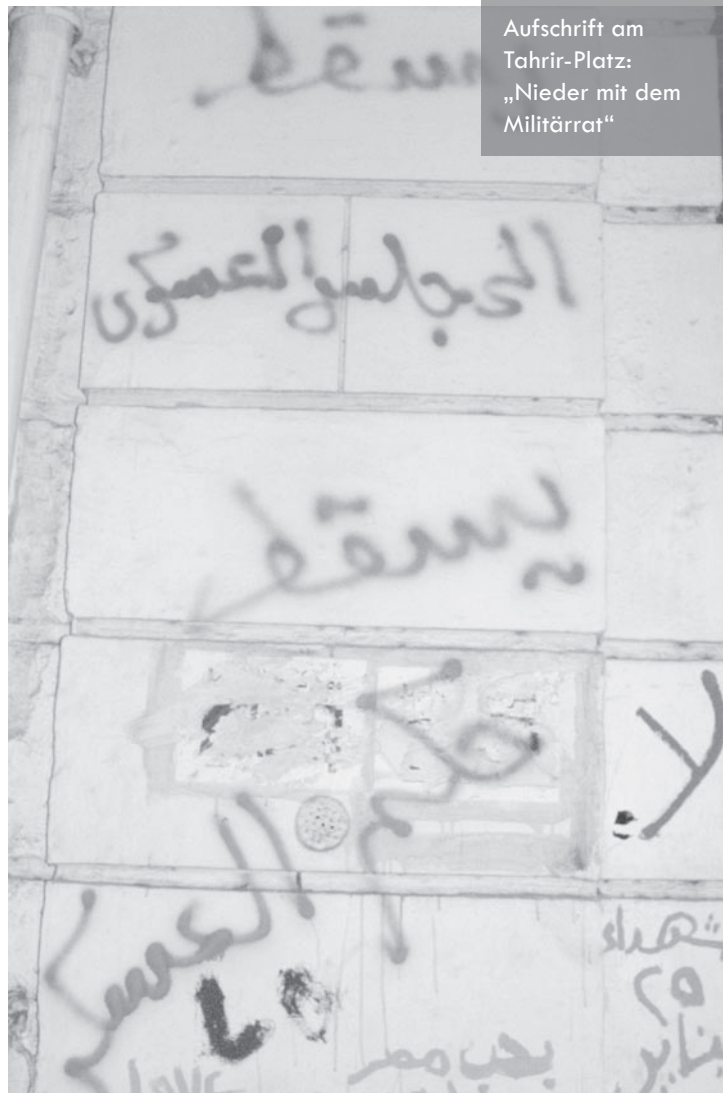 Aufschrift am
Tahrir-Platz:
„Nieder mit dem
Militärrat“
يسقط
المجلس العسكرى
يسقط
حكم
العسكر
لا
شهداء
٢٥
يناير
بحب مصر
love